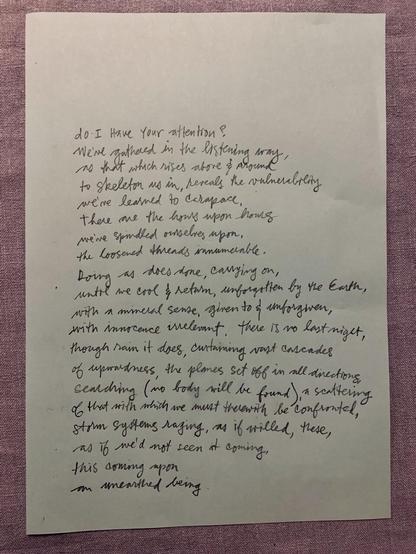 do I Have Your attention?
We've gathered in the listening way,
as that which rises above & around
to skeleton us in, reveals the vulnerability
we've learned to carapace,
there are the hours upon hours
we've spindled ourselves upon,
the loosened threads innumerable.
Doing as does done, carrying on,
until we cool & return, unforgotten by the Earth,
with a mineral sense, given to & unforgiven,
with innocence irrelevant. There is no last night,
though rain it does, curtaining vast cascades
of upwardness, the planes set off in all directions
searching (no body will be found), a scattering
of that with which we must therewith be confronted,
storm systems raging, as if willed, these,
as if we'd not seen it coming,
this coming upon
an unearthed being.